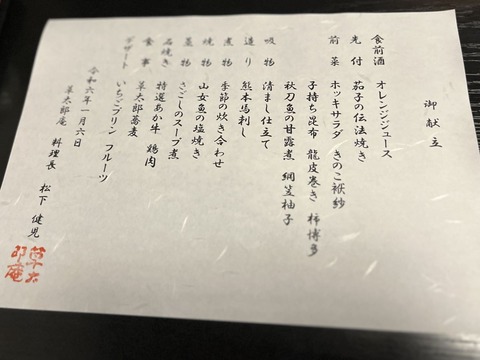 御献立
食前酒 オレンジジュース
先付 茄子の伝法焼き
前菜 ホッキサラダ きのこ袱紗
子持ち昆布 龍皮巻き 柿博多
秋刀魚の甘露煮 網笠柚子
吸物 清まし仕立て
造り 熊本馬刺し
煮物 季節の炊き合わせ
焼物 山女魚の塩焼き
蒸物 さごしのスープ煮
石焼き 特選あか牛 鶏肉
食事 草太郎蕎麦
デザート いちごプリン フルーツ
令和六年一月六日
草太郎庵 料理長 松下健児
草太郎庵